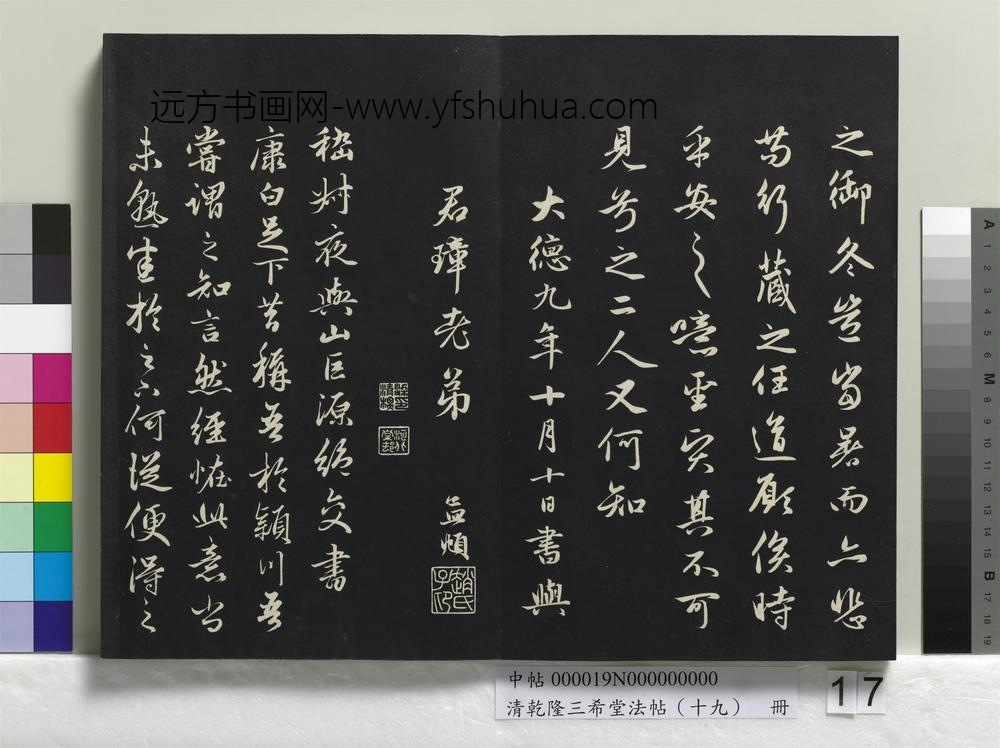 远方书画网-www.yfshuhua.com
之御冬豈當暑而亦悲
苟行藏之任道顧俟時
乎安之噫聖賢其不可
見兮之二人又何知
大德九年十月十日書與
君璋老弟
孟頫
趙氏子昂
嵇叔夜與山巨源絕交書
康白足下昔稱吾於潁川吾
嘗謂之知言然經怪此意尚
未熟悉於足下何從便得之
中帖 000019N000000000
清乾隆三希堂法帖（十九） 冊
17
A 1 2 3 4 5 6 M 8 9 10 11 12 13 14 15 B 17 18 19